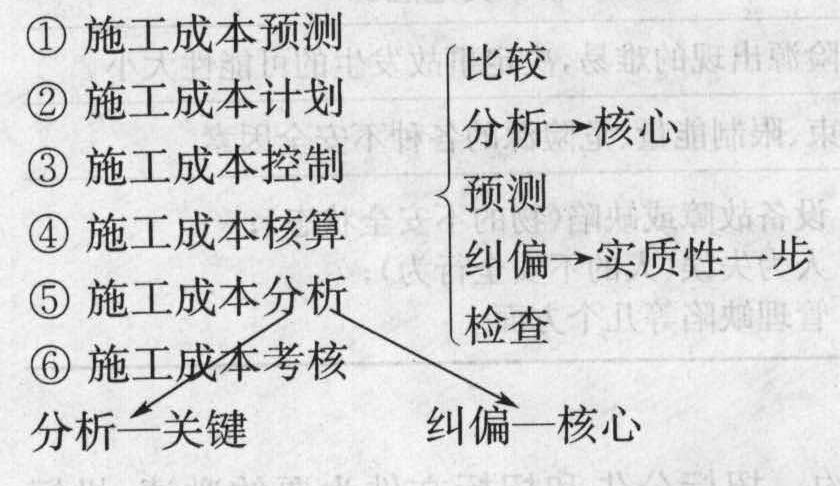 ① 施工成本预测
② 施工成本计划
③ 施工成本控制
④ 施工成本核算
⑤ 施工成本分析
⑥ 施工成本考核
比较
分析→核心
预测
纠偏→实质性一步
检查
分析—关键
纠偏—核心